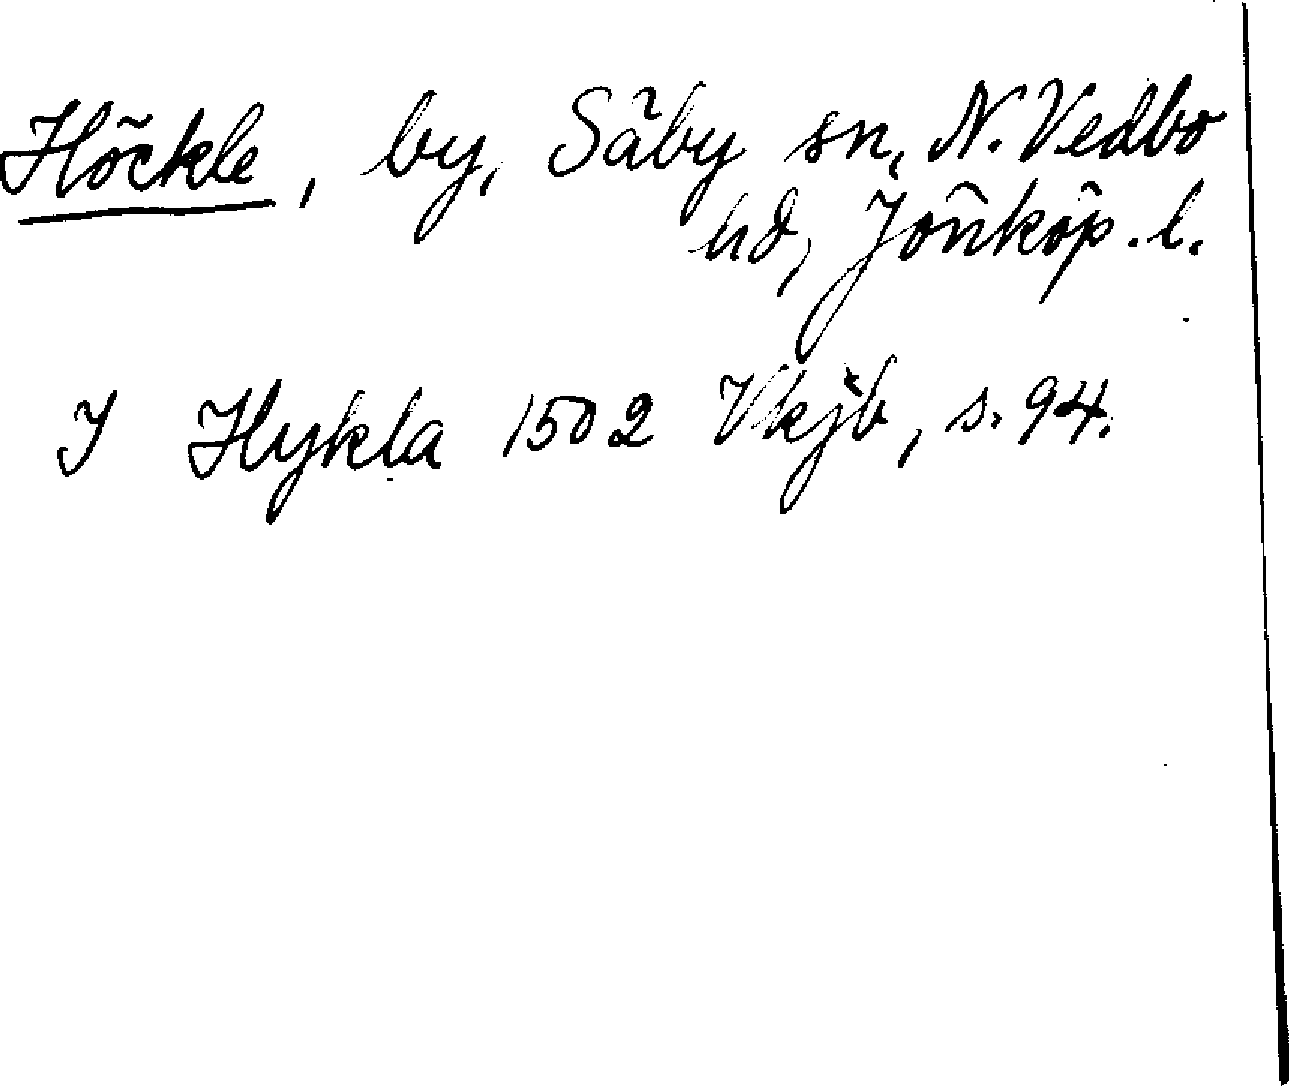 Höckle, by, Säby sn, N. Vedbo
hd, Jönköp. l.
I Hykla 1502 Vkjb, s. 94.